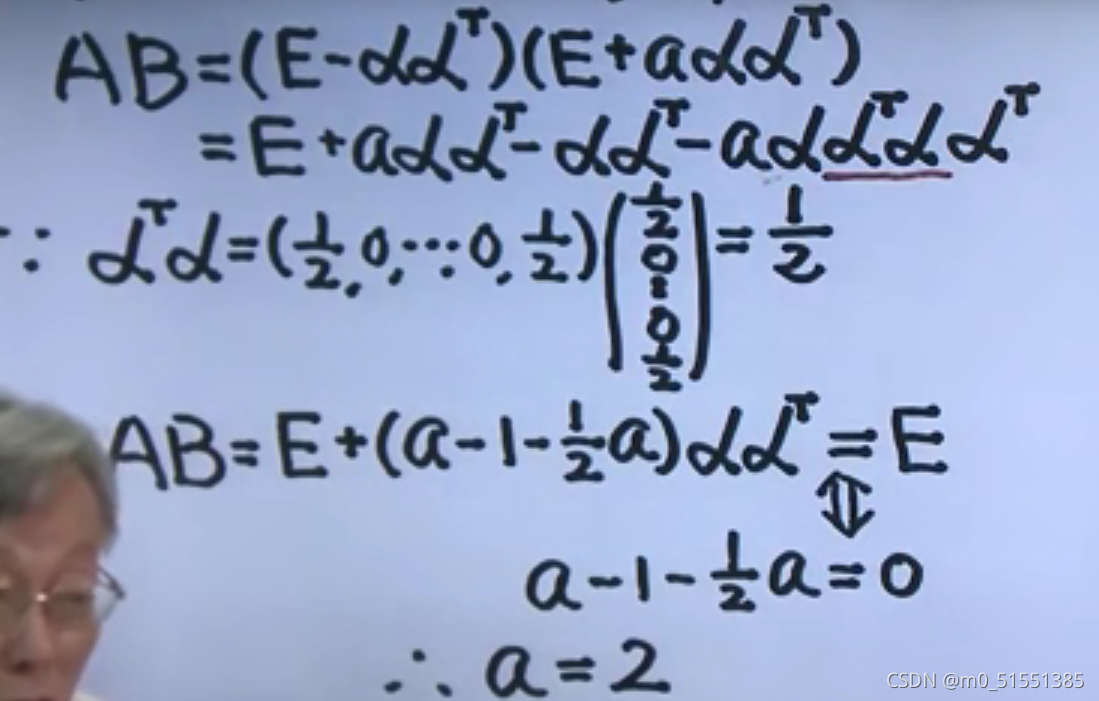 AB=(E-αα^T)(E+aαα^T)
=E+aαα^T-αα^T-aαα^Tαα^T
∵ α^Tα=(1/2,0,…0,1/2)(1/2 0 ⋮ 0 1/2)=1/2
AB=E+(a-1-1/2a)αα^T=E
⇕
a-1-1/2a=0
∴ a=2
CSDN @m0_51551385